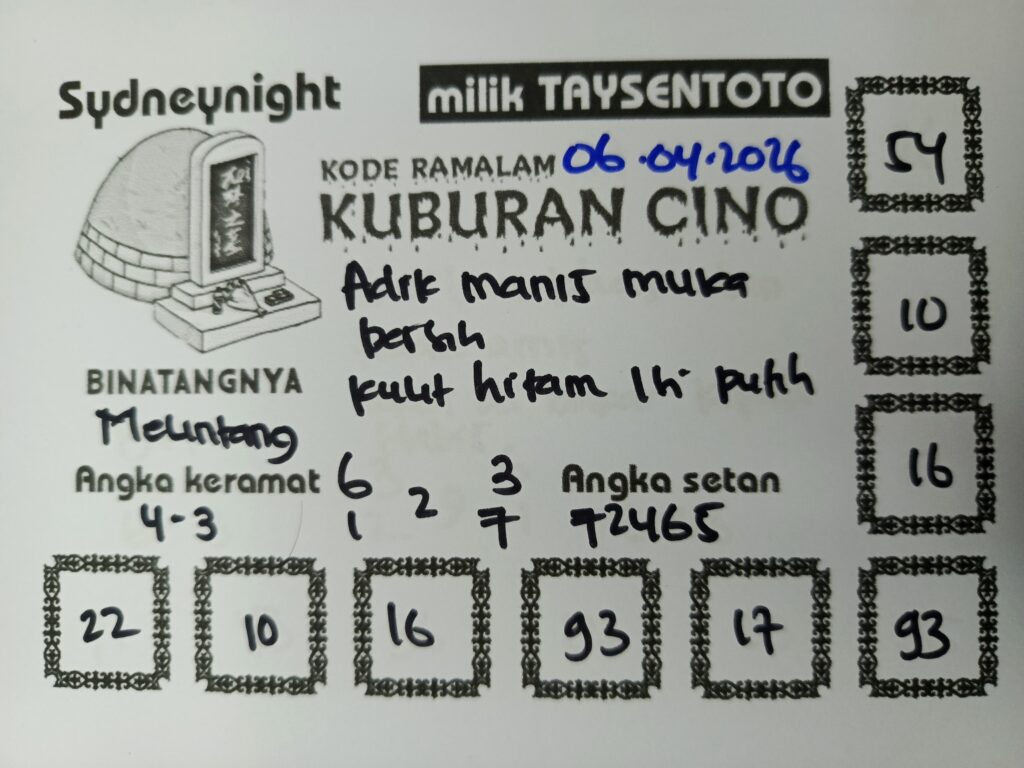 Sydneynight
milik TAYSENTOTO
KODE RAMALAM 06.04.2026
KUBURAN CINO
Adik manis muka
bersih
kulit hitam lh putih
BINATANGNYA
Melintang
Angka keramat
4-3
6 2 3
1 7
Angka setan
72465
54
10
16
22 10 16 93 17 93